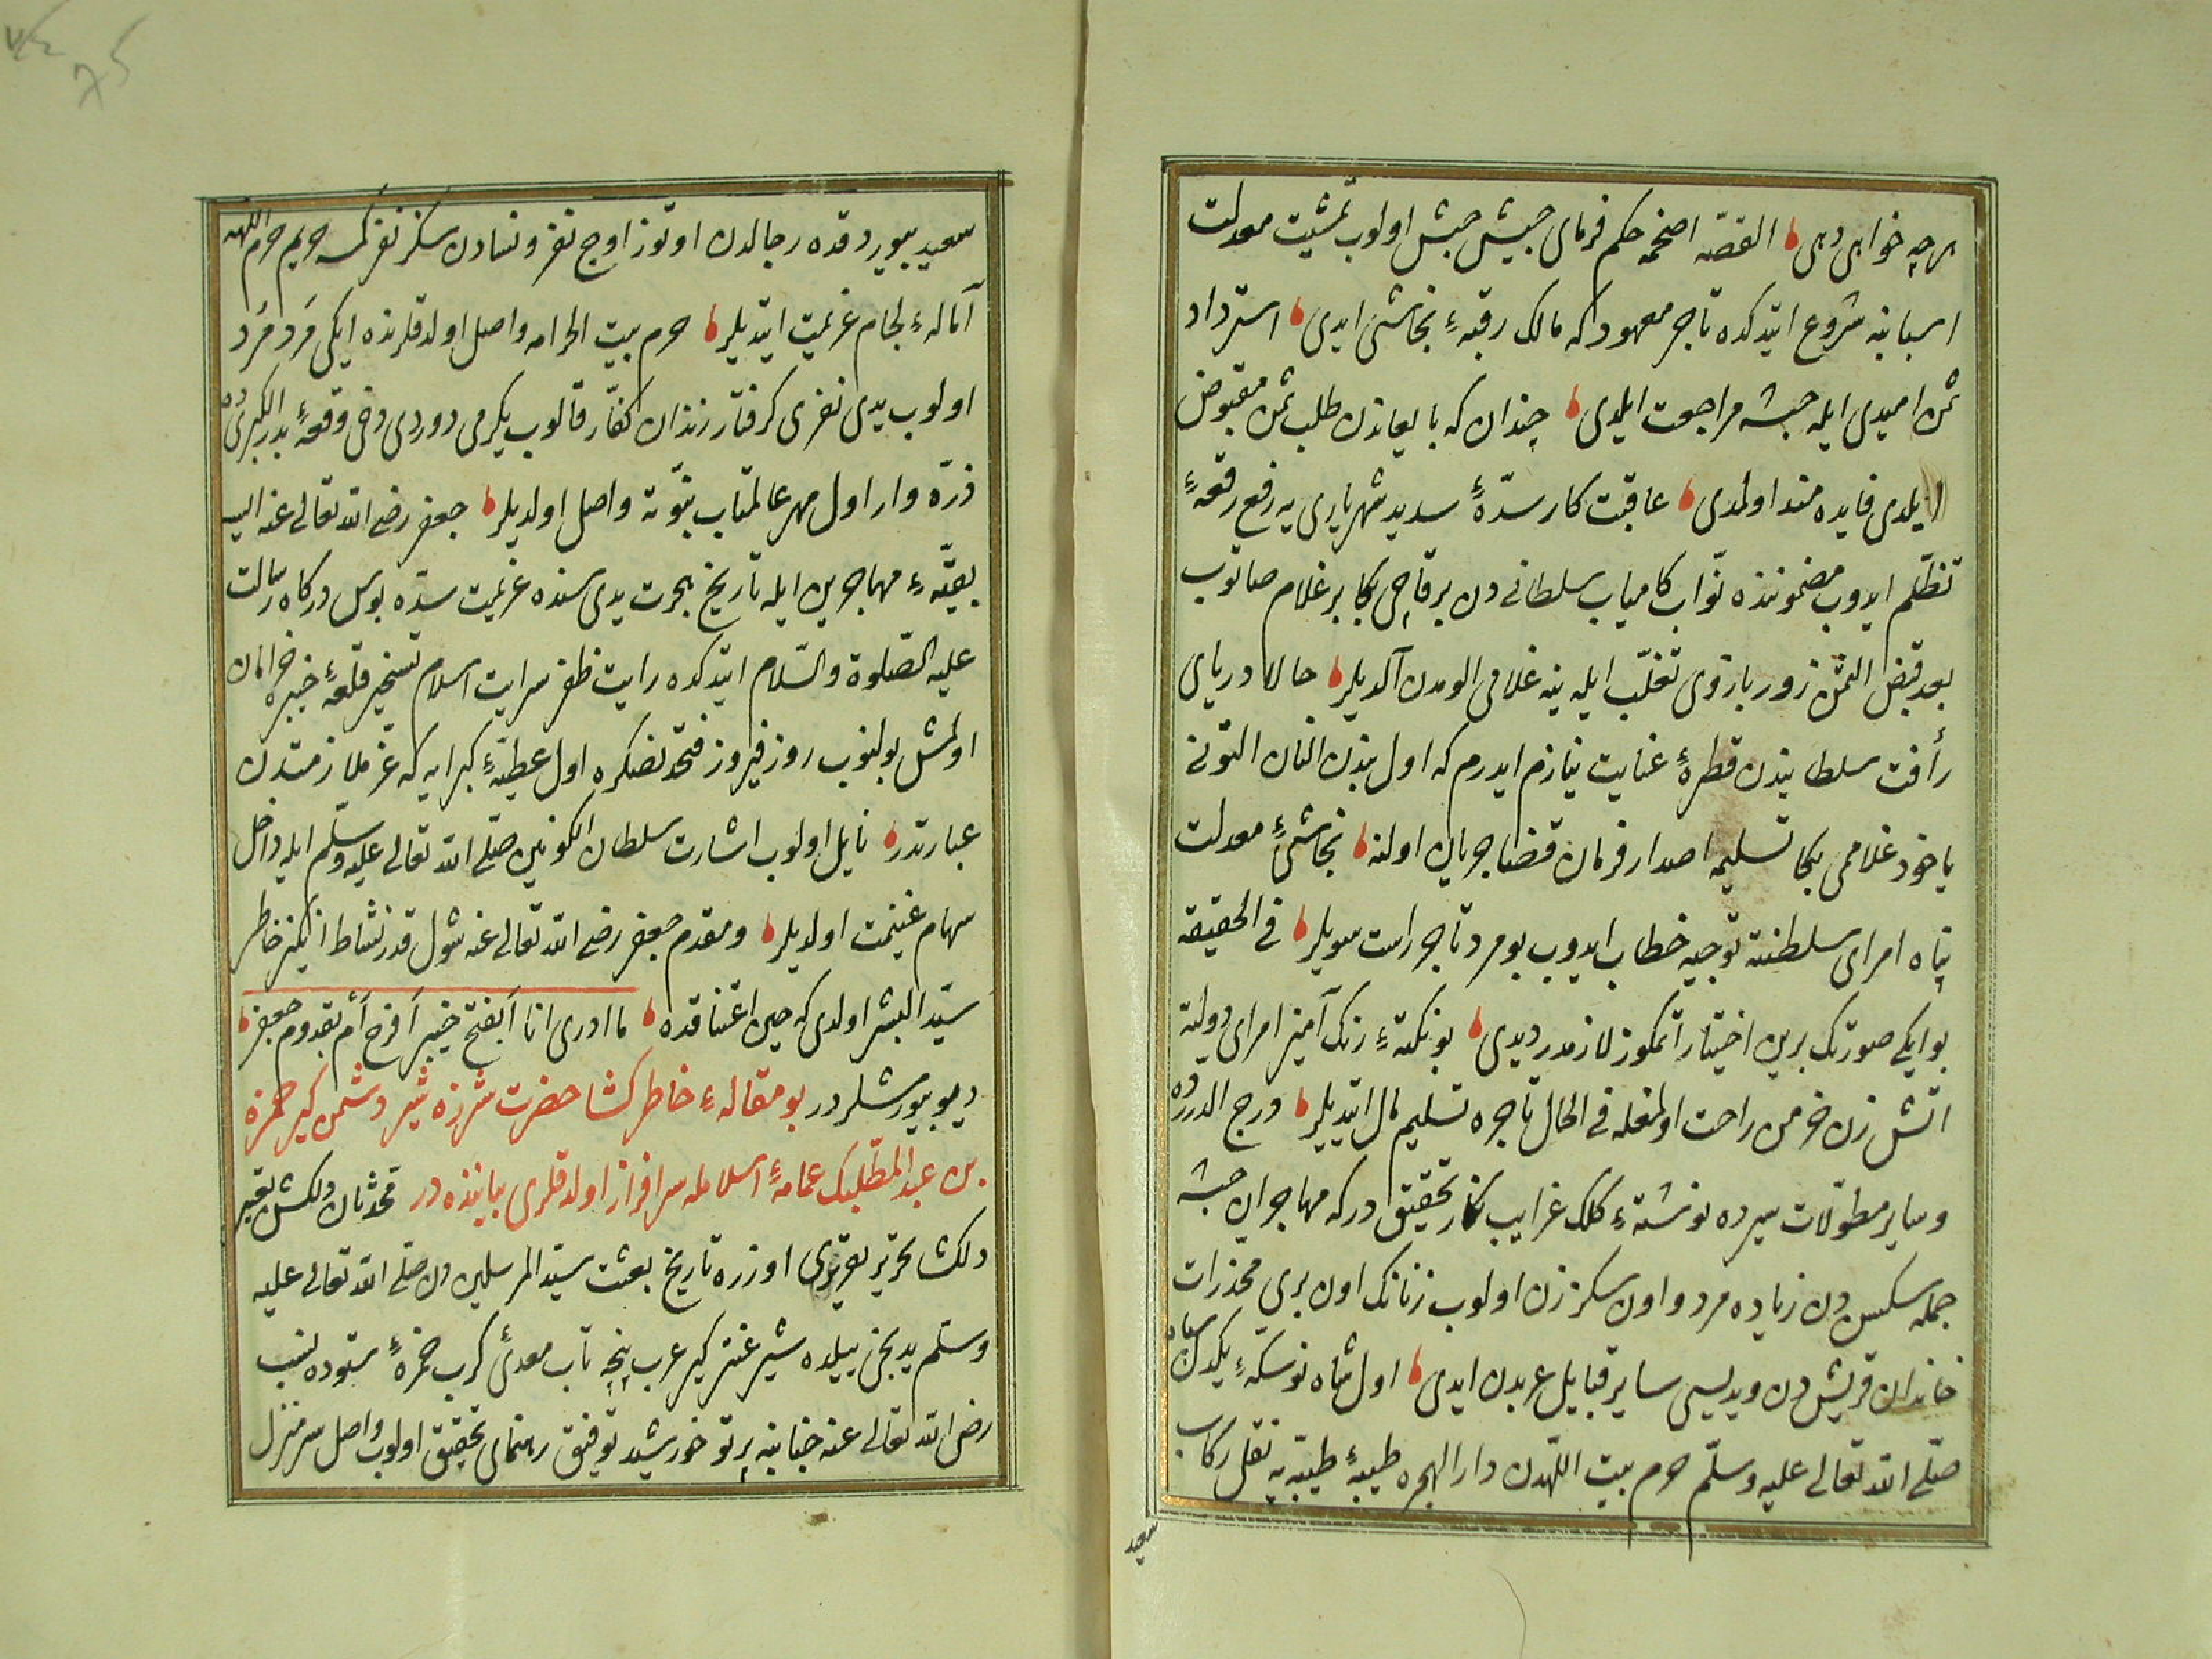 هرچه خواهی دهی القصّه اصحمه حکم فرمای جیش حبش اولوب تمشیت معدلت
اسبابنه شروع ایتدکده تاجر معهود که مالک رقبهٔ نجاشی ایدی استرداد
ثمن امیدی ایله حبشه مراجعت ایلدی چندان که بایعلرندن طلب ثمن مقبوض
ایلدی فایده مند اولمدی عاقبت کار سدّهٔ سدید شهریاری یه رفع رقعهٔ
تظلّم ایدوب مضموننده نوّاب کامیاب سلطانی دن برقاچی بکا بر غلام صاتوب
بعد قبض الثمن زور بازوی تغلّب ایله ینه غلامی الومدن آلدیلر حالا دریای
رأفت سلطانیدن قطرهٔ عنایت نیازم ایدرم که اول بندن النان التونی
یاخود غلاممی بکا تسلیمه اصدار فرمان قضا جریان اولنه نجاشیٔ معدلت
پناه امرای سلطنته توجیه خطاب ایدوب بو مرد تاجر راست سویلر فی الحقیقه
بو ایکی صورتک برین اختیار اتمکوز لازمدر دیدی بو نکتهٔ رنک آمیز امرای دولته
اتش زن خرمن راحت اولمغله فی الحال تاجره تسلیم مال ایتدیلر درج الدرر ده
وسایر مطوّلات سیرده نوشتهٔ کلک غرایب نکار تحقیق در که مهاجران حبشه
جمله سکسن دن زیاده مرد و اون سکز زن اولوب زنانک اون بری مخدرات
خاندان قریش دن ویدیسی سایر قبایل عربدن ایدی اول شاه نوسکّهٔ یکدل سپاه
صلّی الله تعالی علیه وسلّم حرم بیت اللّهدن دار الهجره طیبهٔ طیّبه یه نقل رکاب
سعید
سعید بیوردقده رجالدن اوتوز اوچ نفر ونسادن سکز نفر کمسه حریم حرم اللهه
اماله‌ٔ لجام عزیمت ایتدیلر حرم بیت الحرامه واصل اولدقلرنده ایکی مرد مرد
اولوب یدی نفری کرفتار زندان کفّار قالوب یکرمی دوردی دخی وقعهٔ بدر الکبری ده
ذرّه وار اول مهر عالمتاب نبوّته واصل اولدیلر جعفر رضی الله تعالی عنه الیسه
بقیّهٔ مهاجرین ایله تاریخ هجرت یدی سنده عزیمت سدّه بوس درکاه رسالت
علیه الصّلوة والسّلام ایتدکده رایت ظفر سرایت اسلام تسخیر قلعهٔ خیبره خرامان
اولمش بولنوب روز فیروز فتحدنصکره اول عطیّهٔ کبرایه که عزّ ملازمتدن
عبارتدر نایل اولوب اشارت سلطان الکونین صلّی الله تعالی علیه وسلّم ایله داخل
سهام غنیمت اولدیلر ومقدم جعفر رضی الله تعالی عنه شول قدر نشاط انکیز خاطر
سیّد البشر اولدی که حین اعتناقده ما ادری انا ابفتح خیبر افرح ام بقدوم جعفر
دیو بیورمشلردر بو مقالهٔ خاطر کشا حضرت شرزه شیر دشمن کیر حمزه
بن عبد المطّلبک عمامهٔ اسلامله سرافراز اولدقلری بیاننده در محدثان دلکش تعبیر
دلکشا تحریر تقریری اوزره تاریخ بعثت سیّد المرسلین دن صلّی الله تعالی علیه
وسلّم یدیجی ییلده شیر غضنفر کیر عرب پنجه تاب معدی کرب حمزهٔ ستوده نسب
رضی الله تعالی عنه جنابنه پرتو خورشید توفیق رهنمای تحقیق اولوب واصل سرمنزل